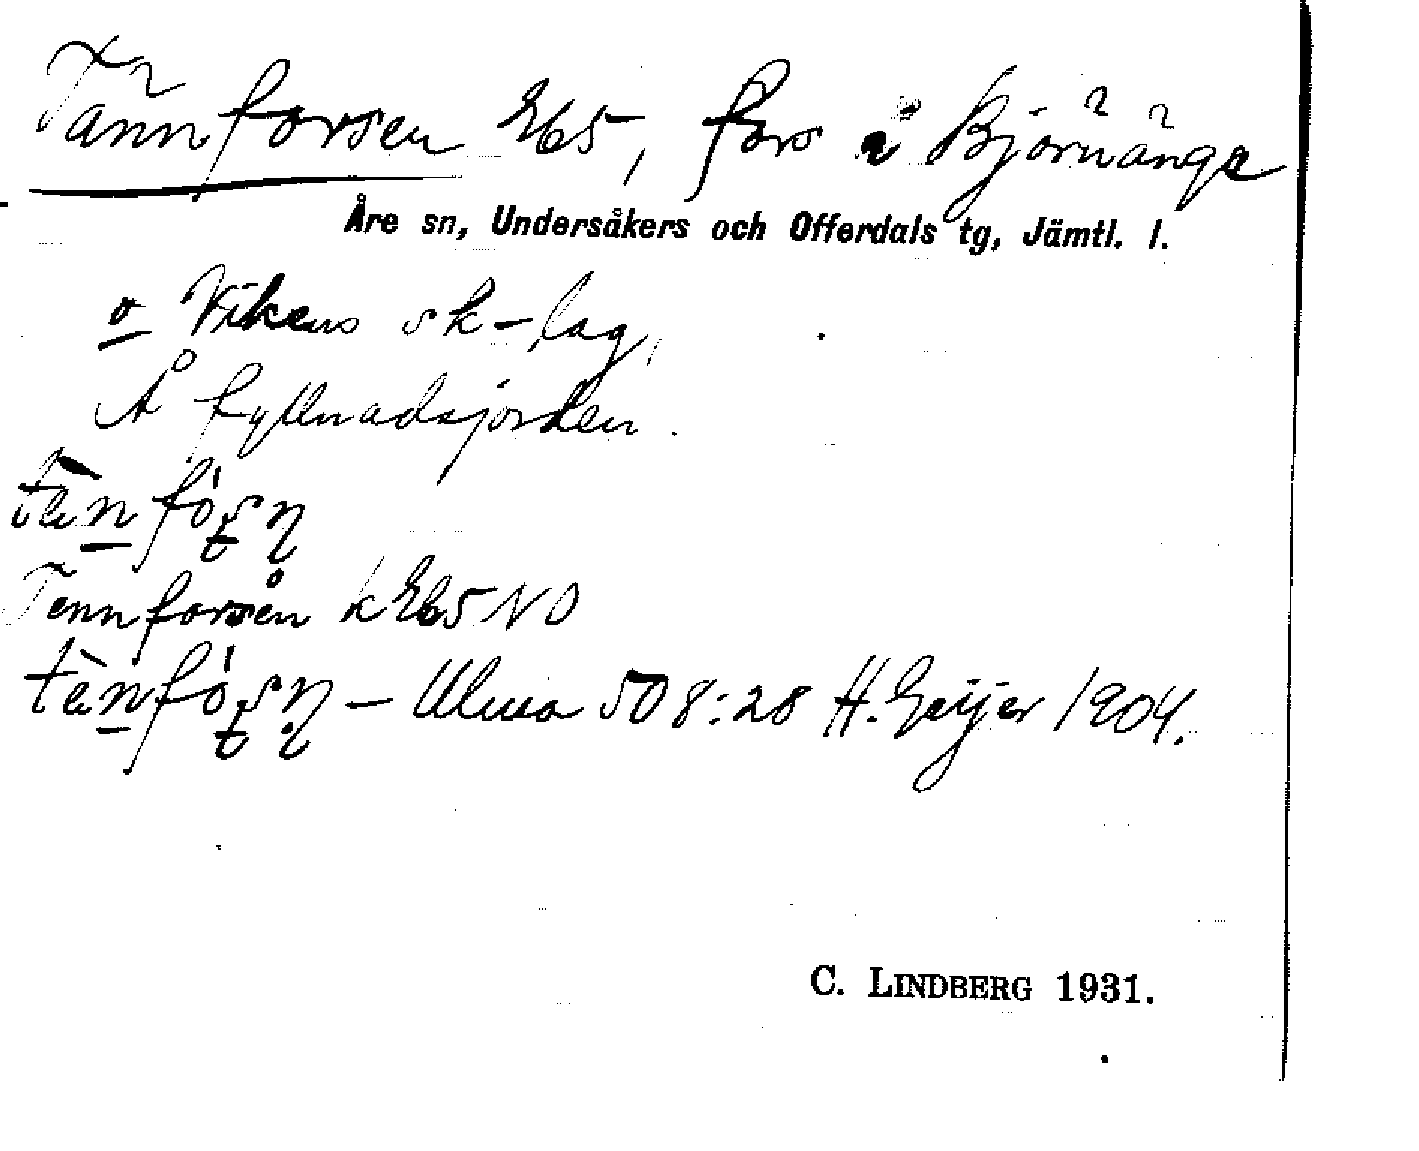 Tännforsen Eb5, fors i Björnänge
Åre sn, Undersåkers och Offerdals tg, Jämtl. l.
o Vikens sk-lag,
Å fyllnadsjorden.
Tennforsån k Eb5 NO
– Ulma 508:28 H. Geijer 1904.
C. LINDBERG 1931.